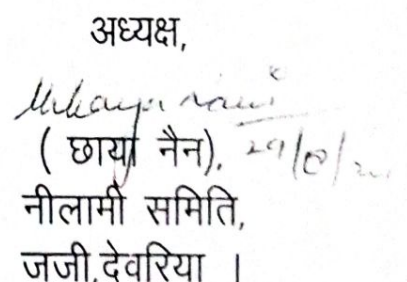 अध्यक्ष,
( छाया नैन),
नीलामी समिति,
जजी,देवरिया ।